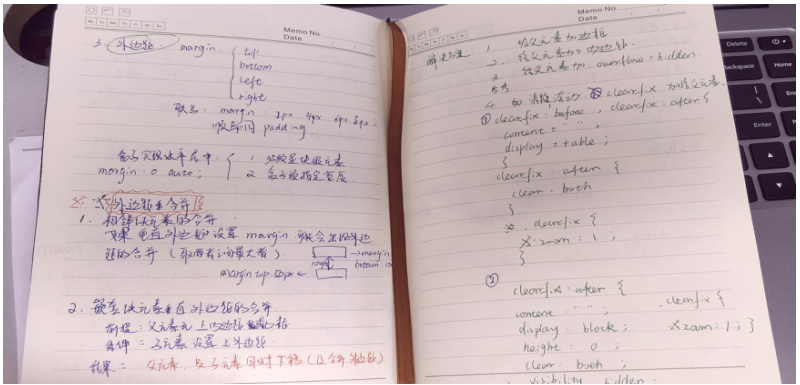 Memo No.
Date
3. 外边距. margin.
top
bottom
left
right
联写: margin: 2px 4px 6px 8px;
顺序同 padding.
盒子实现水平居中.
margin: 0 auto;
1. 必须是块级元素
2. 盒子须指定宽度.
外边距合并
1. 相邻块元素的合并
垂直外边距 设置 margin 就会出现外边
距的合并 (取两者之间最大者).
margin
bottom: 10
margin top.
2. 嵌套块元素垂直外边距的合并
前提: 父元素无上内边距
条件: 子元素设置上外边距.
结果: 父元素, 及子元素同时下移
Memo No.
Date
1 给父元素加边框
2. 给父元素加内边距.
3 给父元素加 overflow: hidden.
4. 加清除浮动 clearfix 加给父元素.
① clearfix: before, clearfix: after {
content = " ";
display = table;
}
clearfix: after {
clear: both
}
*. clearfix {
*zoom: 1;
}
②
clearfix: after {
content: " ";
display: block;
height: 0;
clear: both;
visibility: hidden.
.clearfix {
*zoom: 1; }
Delete
Backspace
Home
Enter